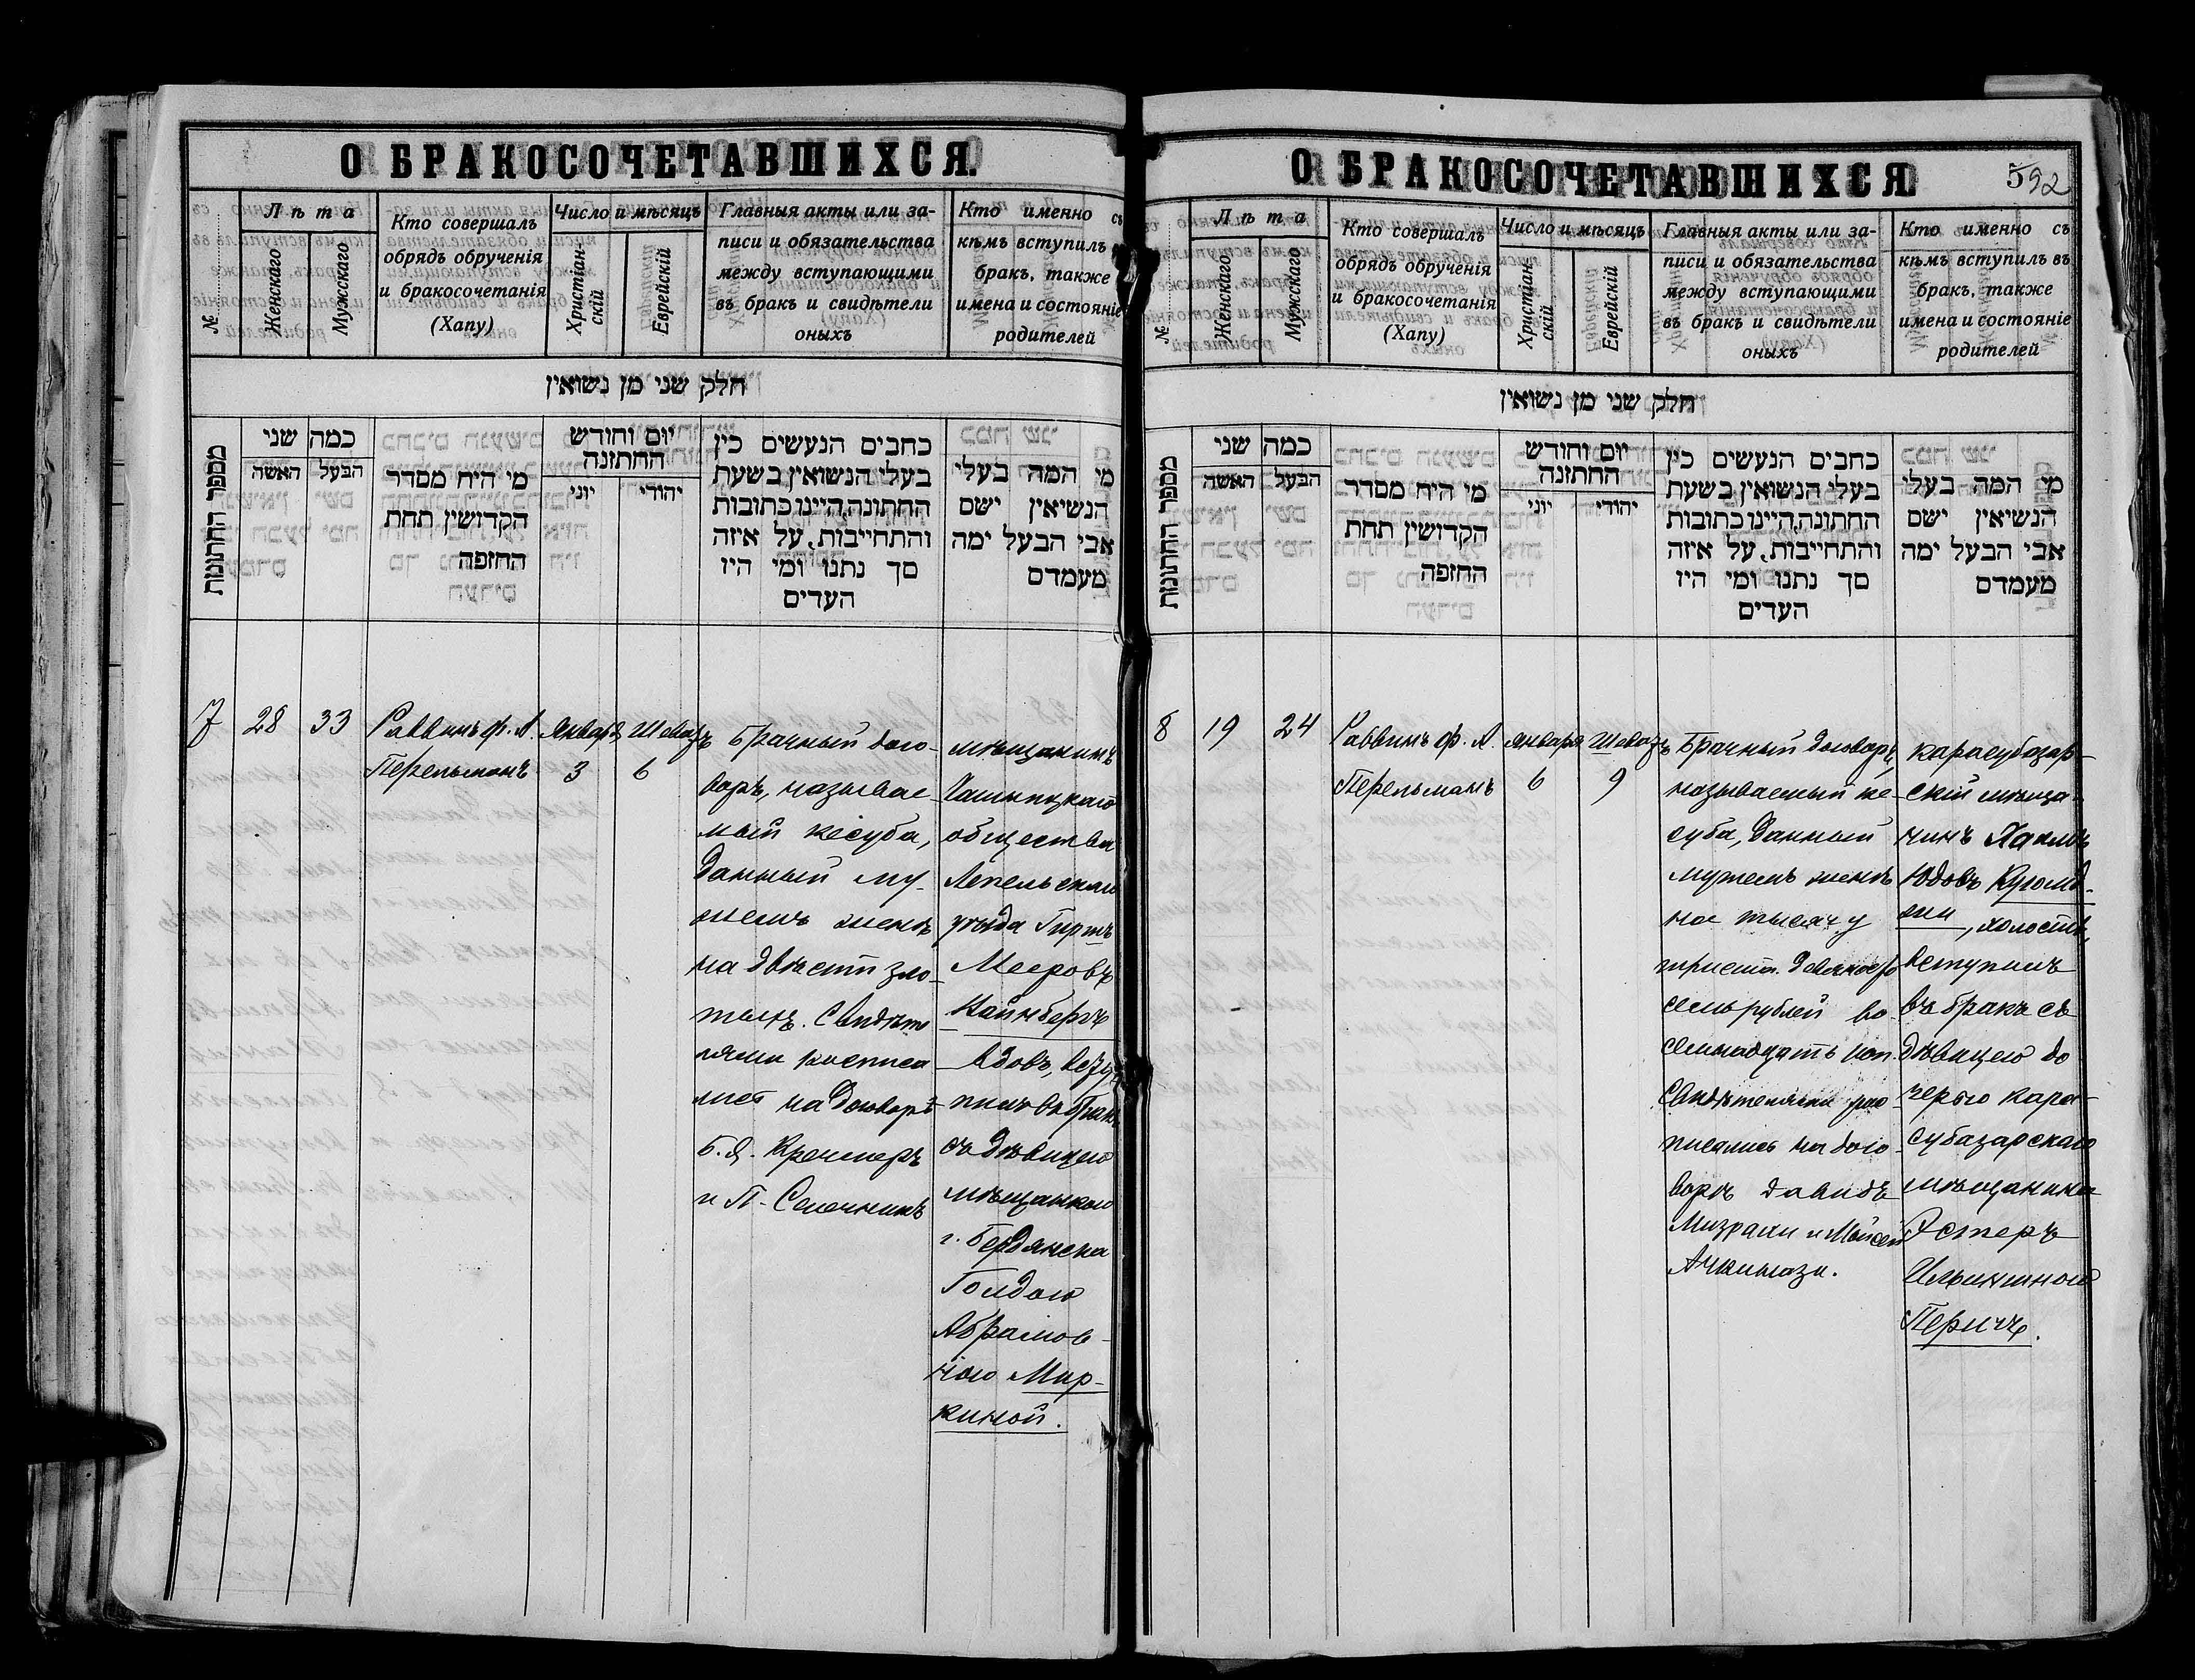 О БРАКОСОЧЕТАВШИХСЯ.
№
Лѣта
Женскаго
Мужскаго
Кто совершалъ
обрядъ обрученія
и бракосочетанія
(Хапу)
Число и мѣсяцъ
Христіан-
скій
Еврейскій
Главныя акты или за-
писи и обязательства
между вступающими
въ бракъ и свидѣтели
оныхъ
Кто именно съ
кѣмъ вступилъ
бракъ, также
имена и состояніе
родителей
חלק שני מן נשואין
מספר החתונות
כמה שני
האשה
הבעל
מי היח מסדר
הקדושין תחת
החופה
יום וחודש
החתונה
יוני
יהודי
כחבים הנעשים כין
בעלי הנשואין בשעת
החתונה, היינו כתובות
והתחייבות, על איזה
סך נתנו ומי היו
העדים
מי המה בעלי
הנשיאין ישם
אבי הבעל ימה
מעמדם
7
28
33
Раввинъ Ф. А.
Перельманъ
Января
3
Шевать
6
Брачный дого-
воръ, называе-
мый кесуба,
данный му-
жемъ женѣ
на двѣсти зло-
тыхъ. Свидѣте
лями росписа
лись на договорѣ
Б. Я. Кремеръ
и П. Сапожникъ
мѣщанинъ
общества
Лепельскаго
уѣзда Гиршъ
Мееровъ
Вайнбергъ
вдовъ, всту-
пилъ въ бракъ
съ дѣвицею
мѣщанкою
г. Бердянска
Голдою
Абрамов-
ною Мир-
киной.
О БРАКОСОЧЕТАВШИХСЯ
592
№
Лѣта
Женскаго
Мужскаго
Кто совершалъ
обрядъ обрученія
и бракосочетанія
(Хапу)
Число и мѣсяцъ
Христіан-
скій
Еврейскій
Главныя акты или за-
писи и обязательства
между вступающими
въ бракъ и свидѣтели
оныхъ
Кто именно съ
кѣмъ вступилъ въ
бракъ, также
имена и состояніе
родителей
חלק שני מן נשואין
מספר החתונות
כמה שני
האשה
הבעל
מי היח מסדר
הקדושין תחת
החופה
יום וחודש
החתונה
יוני
יהודי
כחבים הנעשים כין
בעלי הנשואין בשעת
החתונה, היינו כתובות
והתחייבות, על איזה
סך נתנו ומי היו
העדים
מי המה בעלי
הנשיאין ישם
אבי הבעל ימה
מעמדם
8
19
24
Раввинъ Ф. А.
Перельманъ
января
6
Шевать
9
Брачный договоръ,
называемый ке-
суба, данный
мужемъ женѣ
на тысячу
триста девяносто
семь рублей во-
семнадцать коп.
Свидѣтелями рос-
писались на дого-
ворѣ Давидъ
Мизрахи и Мойсей
Ачкинази.
карасубазар-
скій мѣща-
нинъ
Юдовъ
, холостъ,
вступилъ
въ бракъ съ
дѣвицею до
черью кара-
субазарскаго
мѣщанина
Эстеръ
Перичъ.